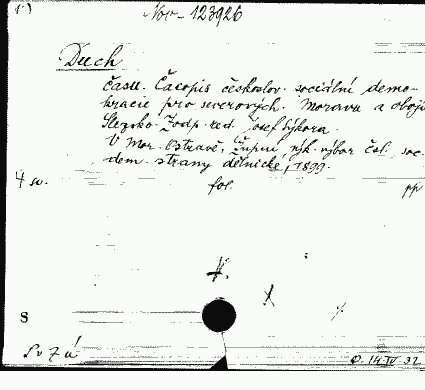 Nov- 123926
Duch
času. Časopis českoslov. sociální demo-
kracie pro severových. Moravu a obojí
Slezsko. Zodp. red. Josef Sýkora.
V Mor. Ostravě, Župní výk. výbor čsl. soc.
dem. strany dělnické, 1899.
4 sv. fol. pp
S
D. 14.IV.32